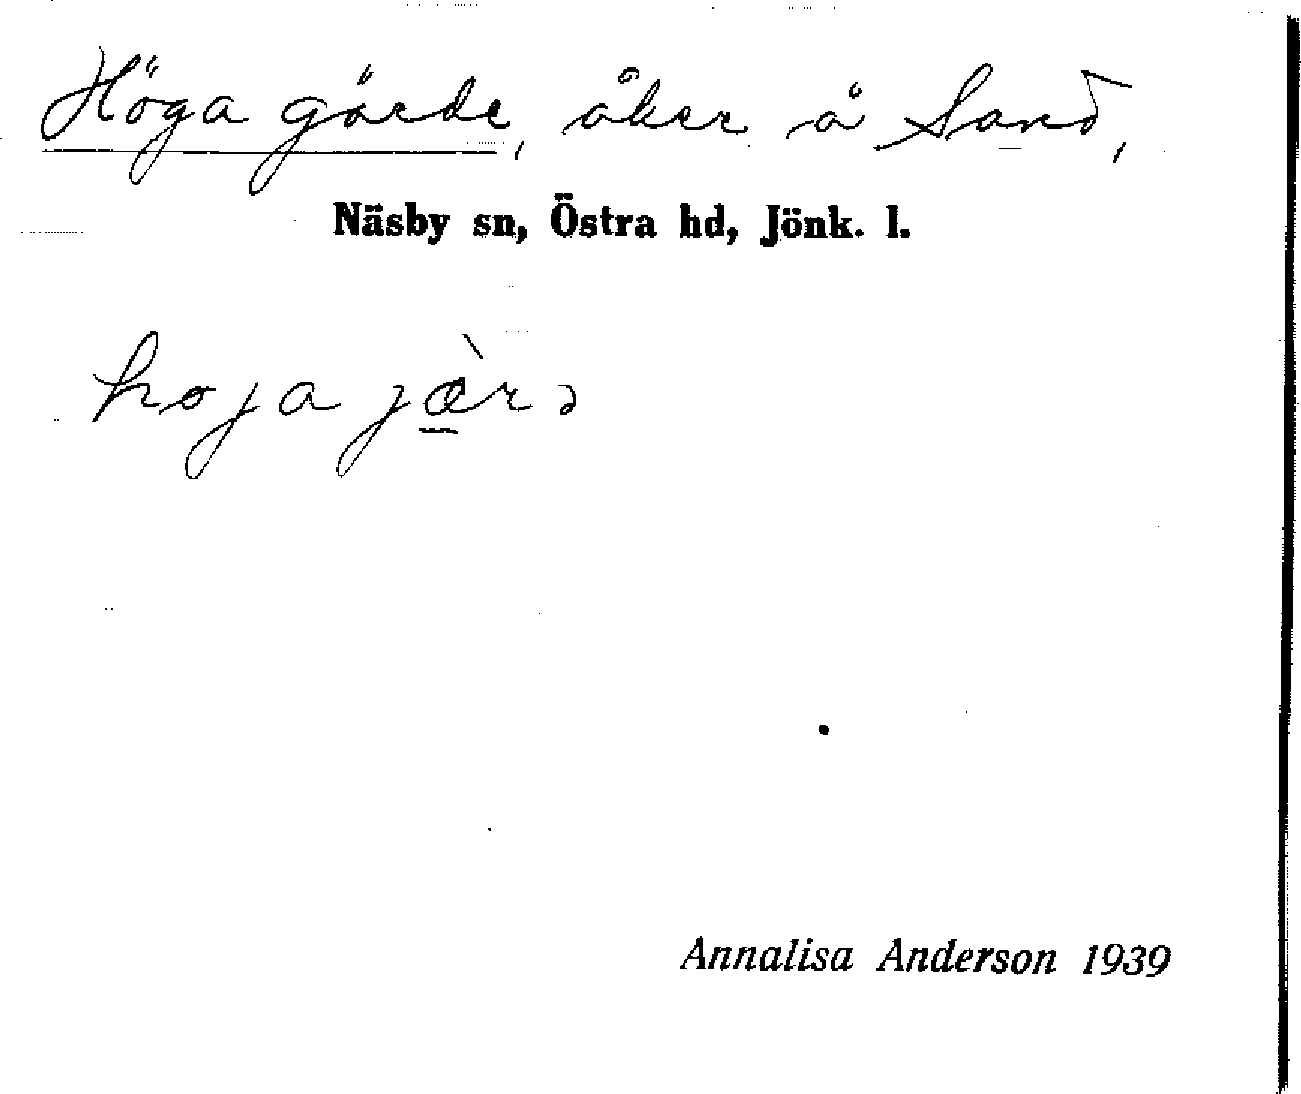 Höga gärde, åker å Sand,
Näsby sn, Östra hd, Jönk. l.
hoja jæ̀rə
Annalisa Anderson 1939